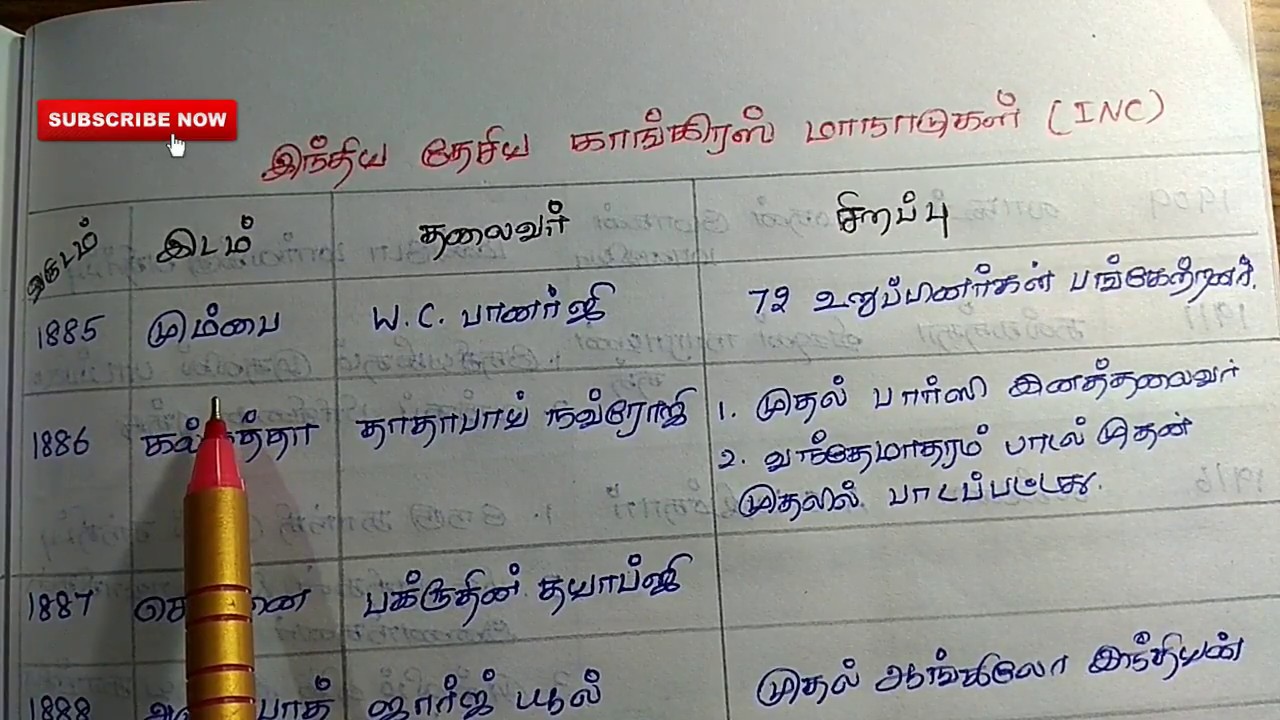 SUBSCRIBE NOW
இந்திய தேசிய காங்கிரஸ் மாநாடுகள் (INC)
வருடம் இடம் தலைவர் சிறப்பு
1885 மும்பை W.C. பானர்ஜி 72 உறுப்பினர்கள் பங்கேற்றனர்.
1886 தாதாபாய் நவ்ரோஜி 1. முதல் பார்ஸி இனத்தலைவர்
2. வந்தேமாதரம் பாடல் முதன்
முதலில் பாடப்பட்டது.
1887 பக்ருதின் தயாப்ஜி
1888 ஜார்ஜ் யூல் முதல் ஆங்கிலோ இந்தியன்